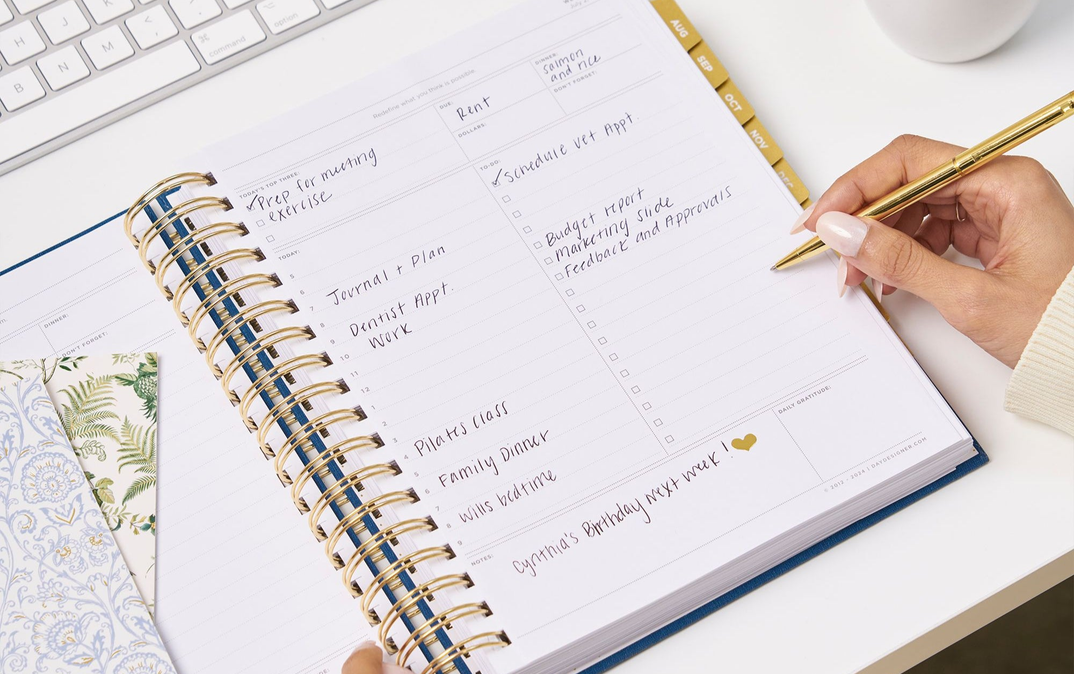 H
B
N
M
<
,
⌘
command
option
AUG
SEP
OCT
NOV
Redefine what you think is possible.
DUE:
Rent
DOLLARS:
DINNER:
salmon
and rice
DON'T FORGET:
TODAY'S TOP THREE:
✓Prep for meeting
exercise
TO-DO:
✓Schedule Vet Appt.
Budget report
marketing slide
Feedback and Approvals
TODAY:
5
7
Journal + Plan
8
9
Dentist Appt.
10
Work
11
12
1
3
4
Pilates Class
5
6
Family Dinner
7
8
Wills bedtime
9
DAILY GRATITUDE:
NOTES:
Cynthia's Birthday next week!
© 2012 - 2024 | DAYDESIGNER.COM
DINNER:
DON'T FORGET: